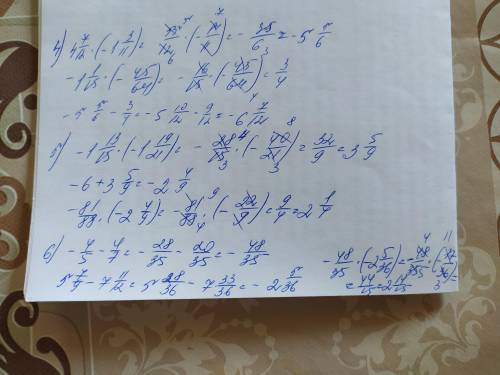 4) 4 7/12 · (-1 3/11) = 55/12 · (-14/11) = - 35/6 = -5 5/6
-1 1/15 · (-45/64) = - 16/15 · (-45/64) = 3/4
-5 5/6 - 3/4 = -5 10/12 - 9/12 = -6 7/12
5) -1 13/15 · (-1 19/21) = - 28/15 · (-40/21) = 32/9 = 3 5/9
-6 + 3 5/9 = -2 4/9
- 81/88 · (-2 4/9) = - 81/88 · (-22/9) = 9/4 = 2 1/4
6) - 4/5 - 4/7 = - 28/35 - 20/35 = - 48/35
5 7/9 - 7 11/12 = 5 28/36 - 7 33/36 = - 2 5/36
- 48/35 · (-2 5/36) = - 48/35 · (-77/36) =
= 44/15 = 2 14/15